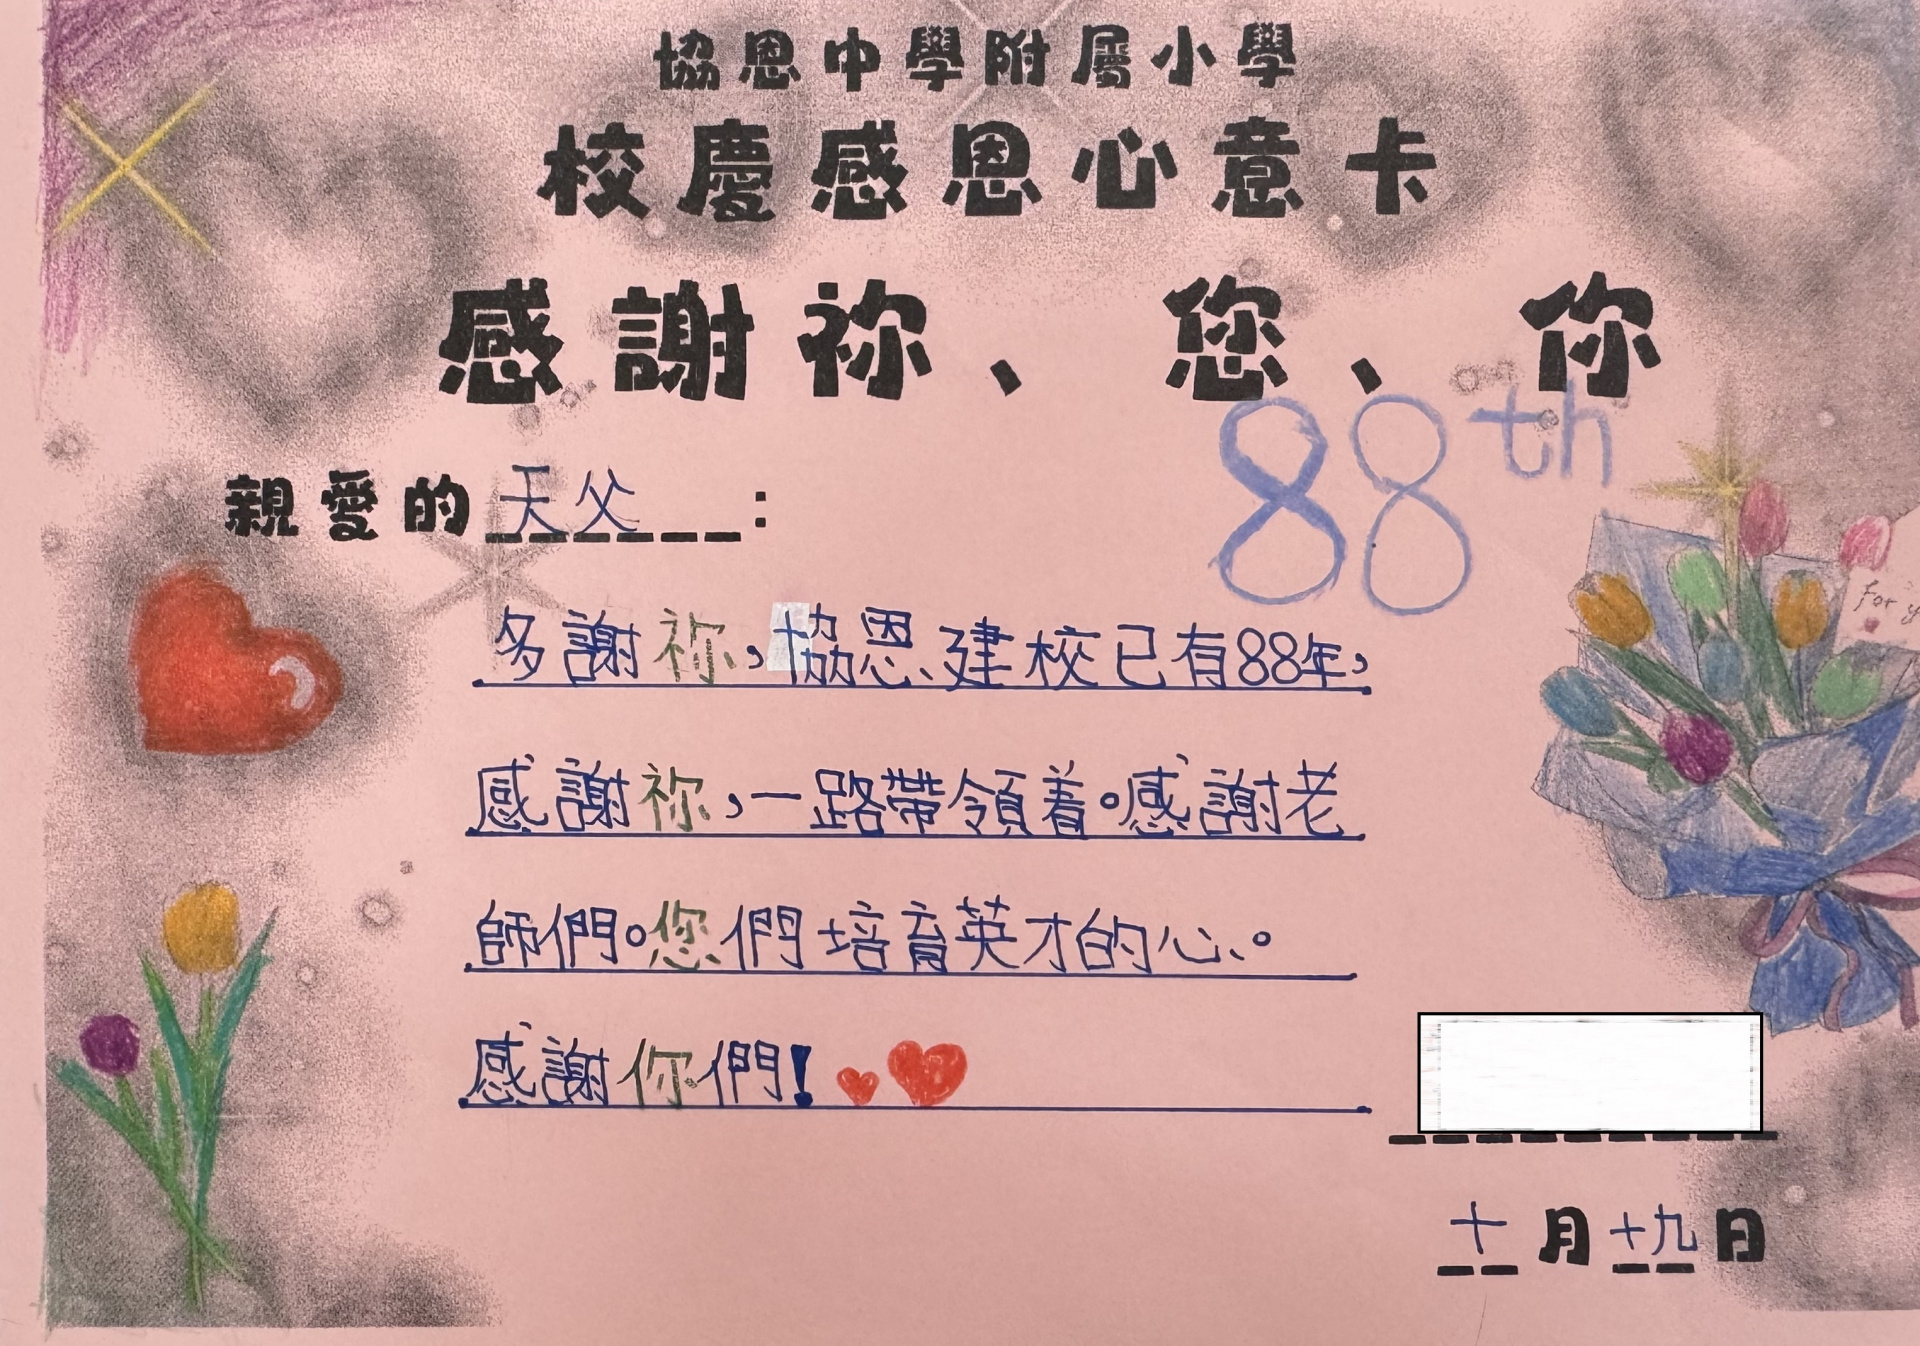 協恩中學附屬小學
校慶感恩心意卡
感謝祢、您、你
88th
親愛的天父：
多謝祢，協恩建校已有88年，
感謝祢，一路帶領着。感謝老
師們。您們培育英才的心。
感謝你們！
for y
十月十九日